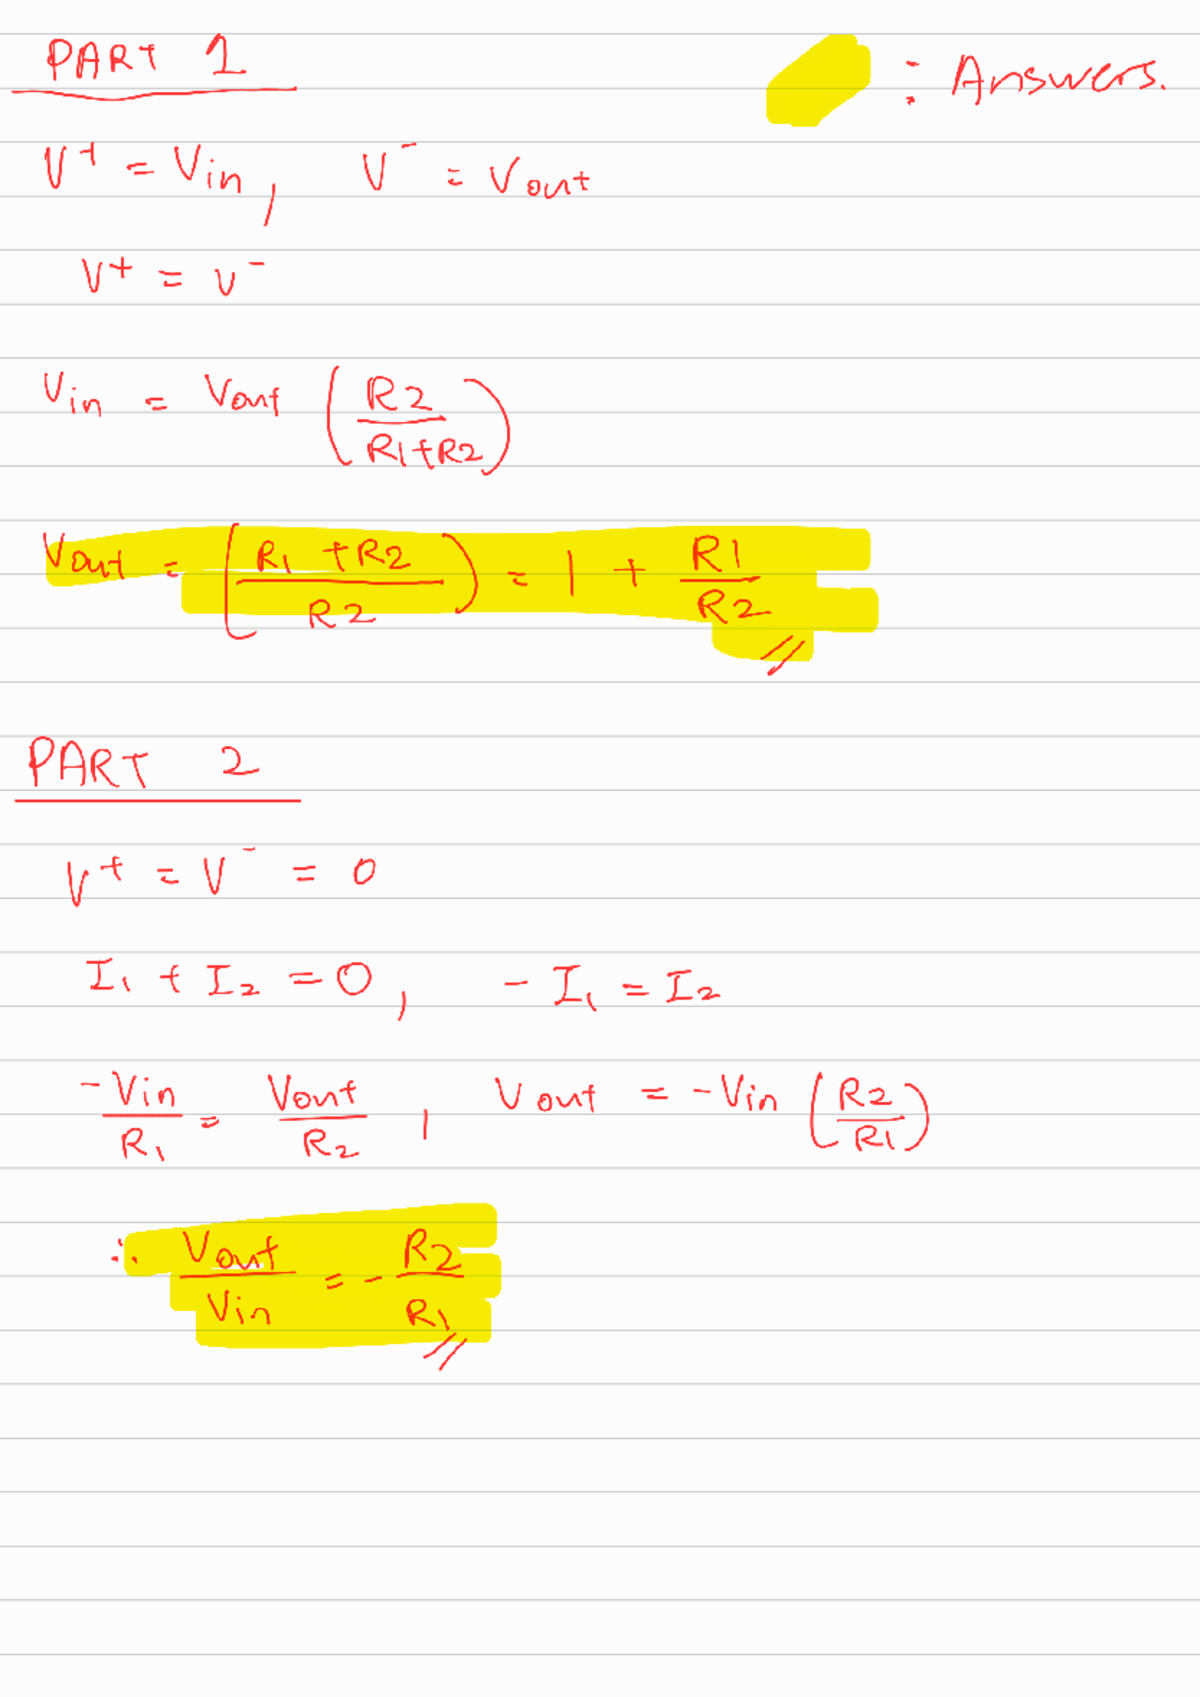 PART 1
: Answers.
V⁺ = Vin, V⁻ = Vout
V⁺ = V⁻
Vin = Vout (R2 / (R1+R2))
Vout = ((R1 + R2) / R2) = 1 + R1 / R2 //
PART 2
V⁺ = V⁻ = 0
I₁ + I₂ = 0, - I₁ = I₂
-Vin / R₁ = Vout / R₂, Vout = -Vin (R2 / R1)
∴ Vout / Vin = - R2 / R1 //